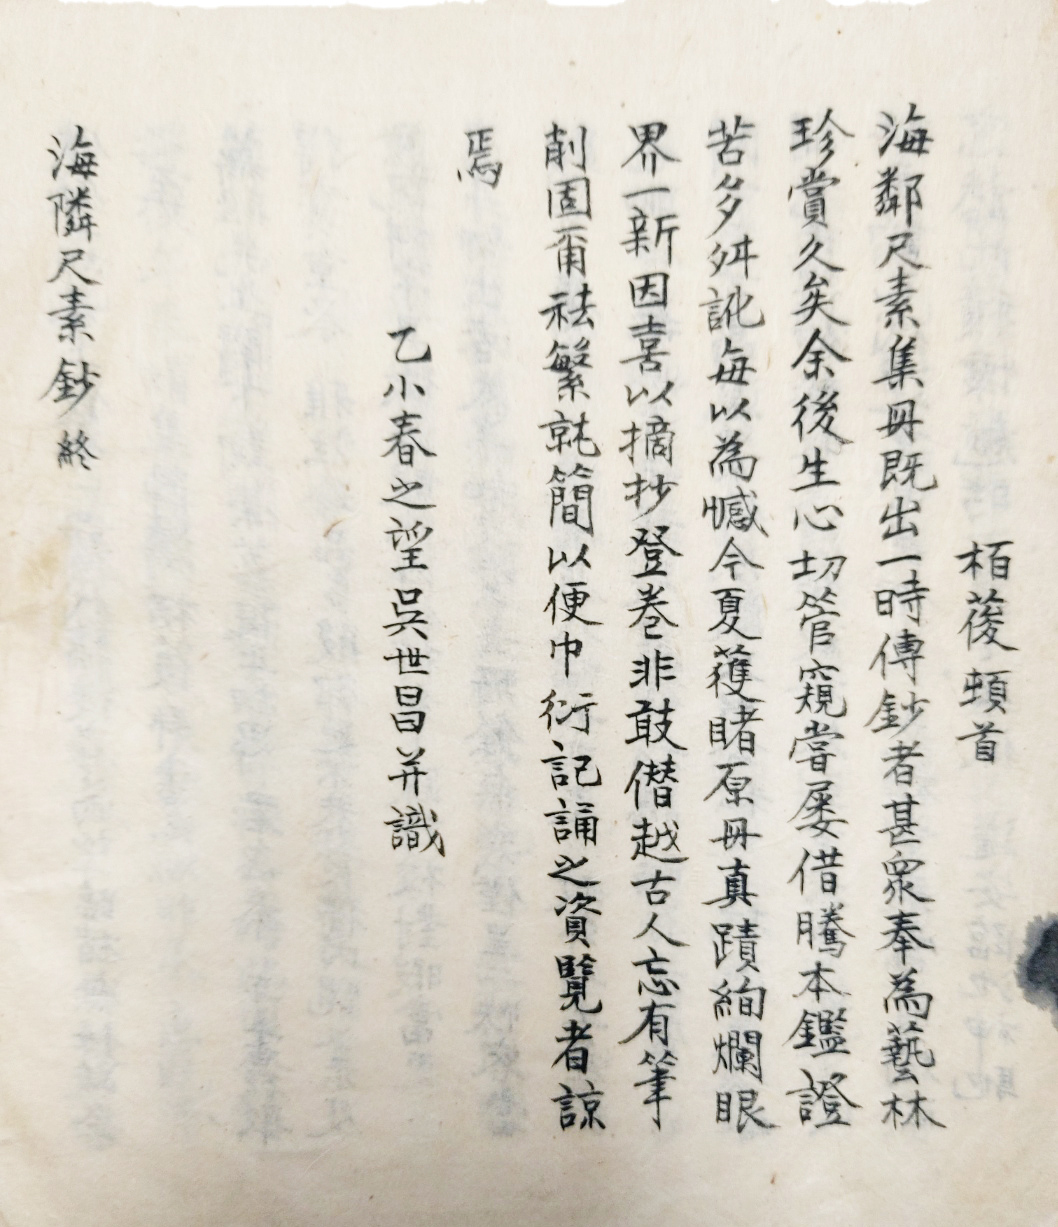 栢葰頓首
海鄰尺素集册既出一時傳鈔者甚衆奉為藝林
珍賞久矣余後生心切管窺嘗屡借騰本鑑證
苦多舛訛每以為憾今夏獲睹原册真蹟絢爛眼
界一新因喜以摘抄登卷非敢僭越古人忘有筆
削固爾祛繁就簡以便巾衍記誦之資覽者諒
焉
乙小春之望吳世昌并識
海隣尺素鈔終